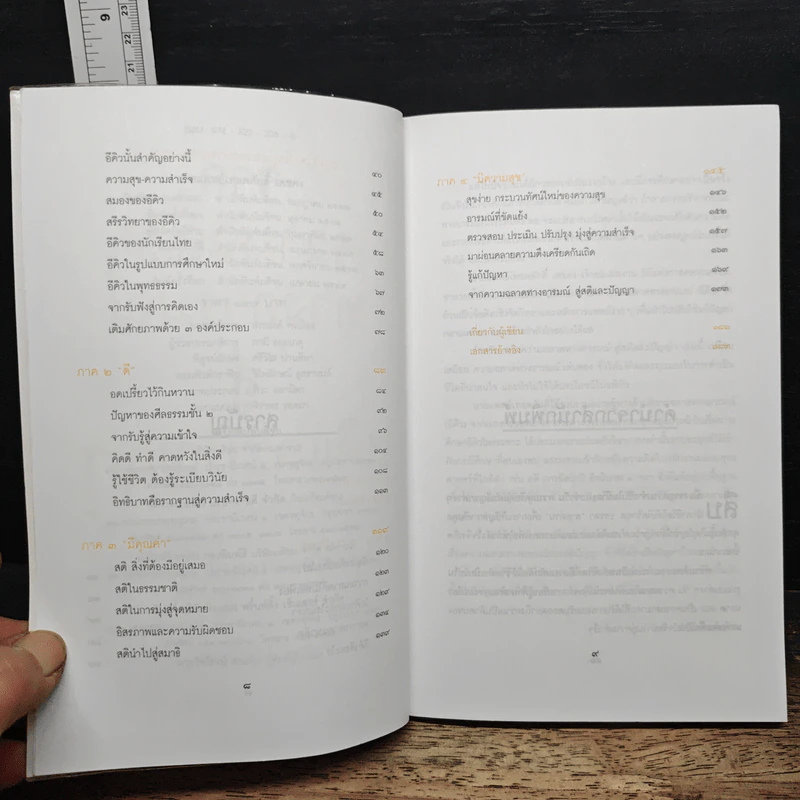 อีคิวนั้นสำคัญอย่างนี้ ๔๐
ความสุข-ความสำเร็จ ๔๕
สมองของอีคิว ๕๐
สรีรวิทยาของอีคิว ๕๔
อีคิวของนักเรียนไทย ๕๘
อีคิวในรูปแบบการศึกษาใหม่ ๖๓
อีคิวในพุทธธรรม ๖๗
จากรับฟังสู่การคิดเอง ๗๒
เติมศักยภาพด้วย ๓ องค์ประกอบ ๗๘
ภาค ๒ "ดี" ๘๓
อดเปรี้ยวไว้กินหวาน ๘๔
ปัญหาของศีลธรรมขั้น ๒ ๙๒
จากรับรู้สู่ความเข้าใจ ๙๖
คิดดี ทำดี คาดหวังในสิ่งดี ๑๐๔
รู้ใช้ชีวิต ต้องรู้ระเบียบวินัย ๑๐๘
อิทธิบาทคือรากฐานสู่ความสำเร็จ ๑๑๓
ภาค ๓ "มีคุณค่า" ๑๑๙
สติ สิ่งที่ต้องมีอยู่เสมอ ๑๒๐
สติในธรรมชาติ ๑๒๓
สติในการมุ่งสู่จุดหมาย ๑๒๙
อิสรภาพและความรับผิดชอบ ๑๓๔
สตินำไปสู่สมาธิ ๑๓๙
๘
ภาค ๔ "มีความสุข" ๑๔๕
สุขง่าย กระบวนทัศน์ใหม่ของความสุข ๑๔๖
อารมณ์ที่ขัดแย้ง ๑๕๒
ตรวจสอบ ประเมิน ปรับปรุง มุ่งสู่ความสำเร็จ ๑๕๗
มาผ่อนคลายความตึงเครียดกันเถิด ๑๖๓
รู้แก้ปัญหา ๑๖๙
จากความฉลาดทางอารมณ์ สู่สติและปัญญา ๑๗๓
เกี่ยวกับผู้เขียน
เอกสารอ้างอิง
๙